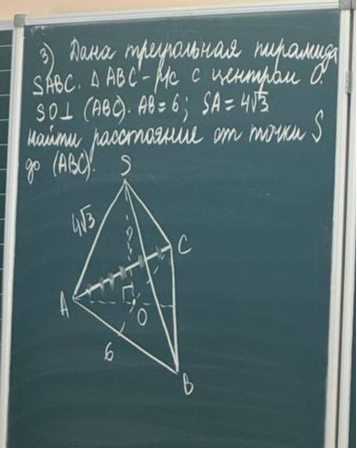 3) Дана треугольная пирамида
SABC. △ABC - р/с с центром О.
SO⊥ (ABC). AB = 6; SA = 4√3
найти расстояние от точки S
до (ABC).
S
4√3
?
C
A
O
6
B